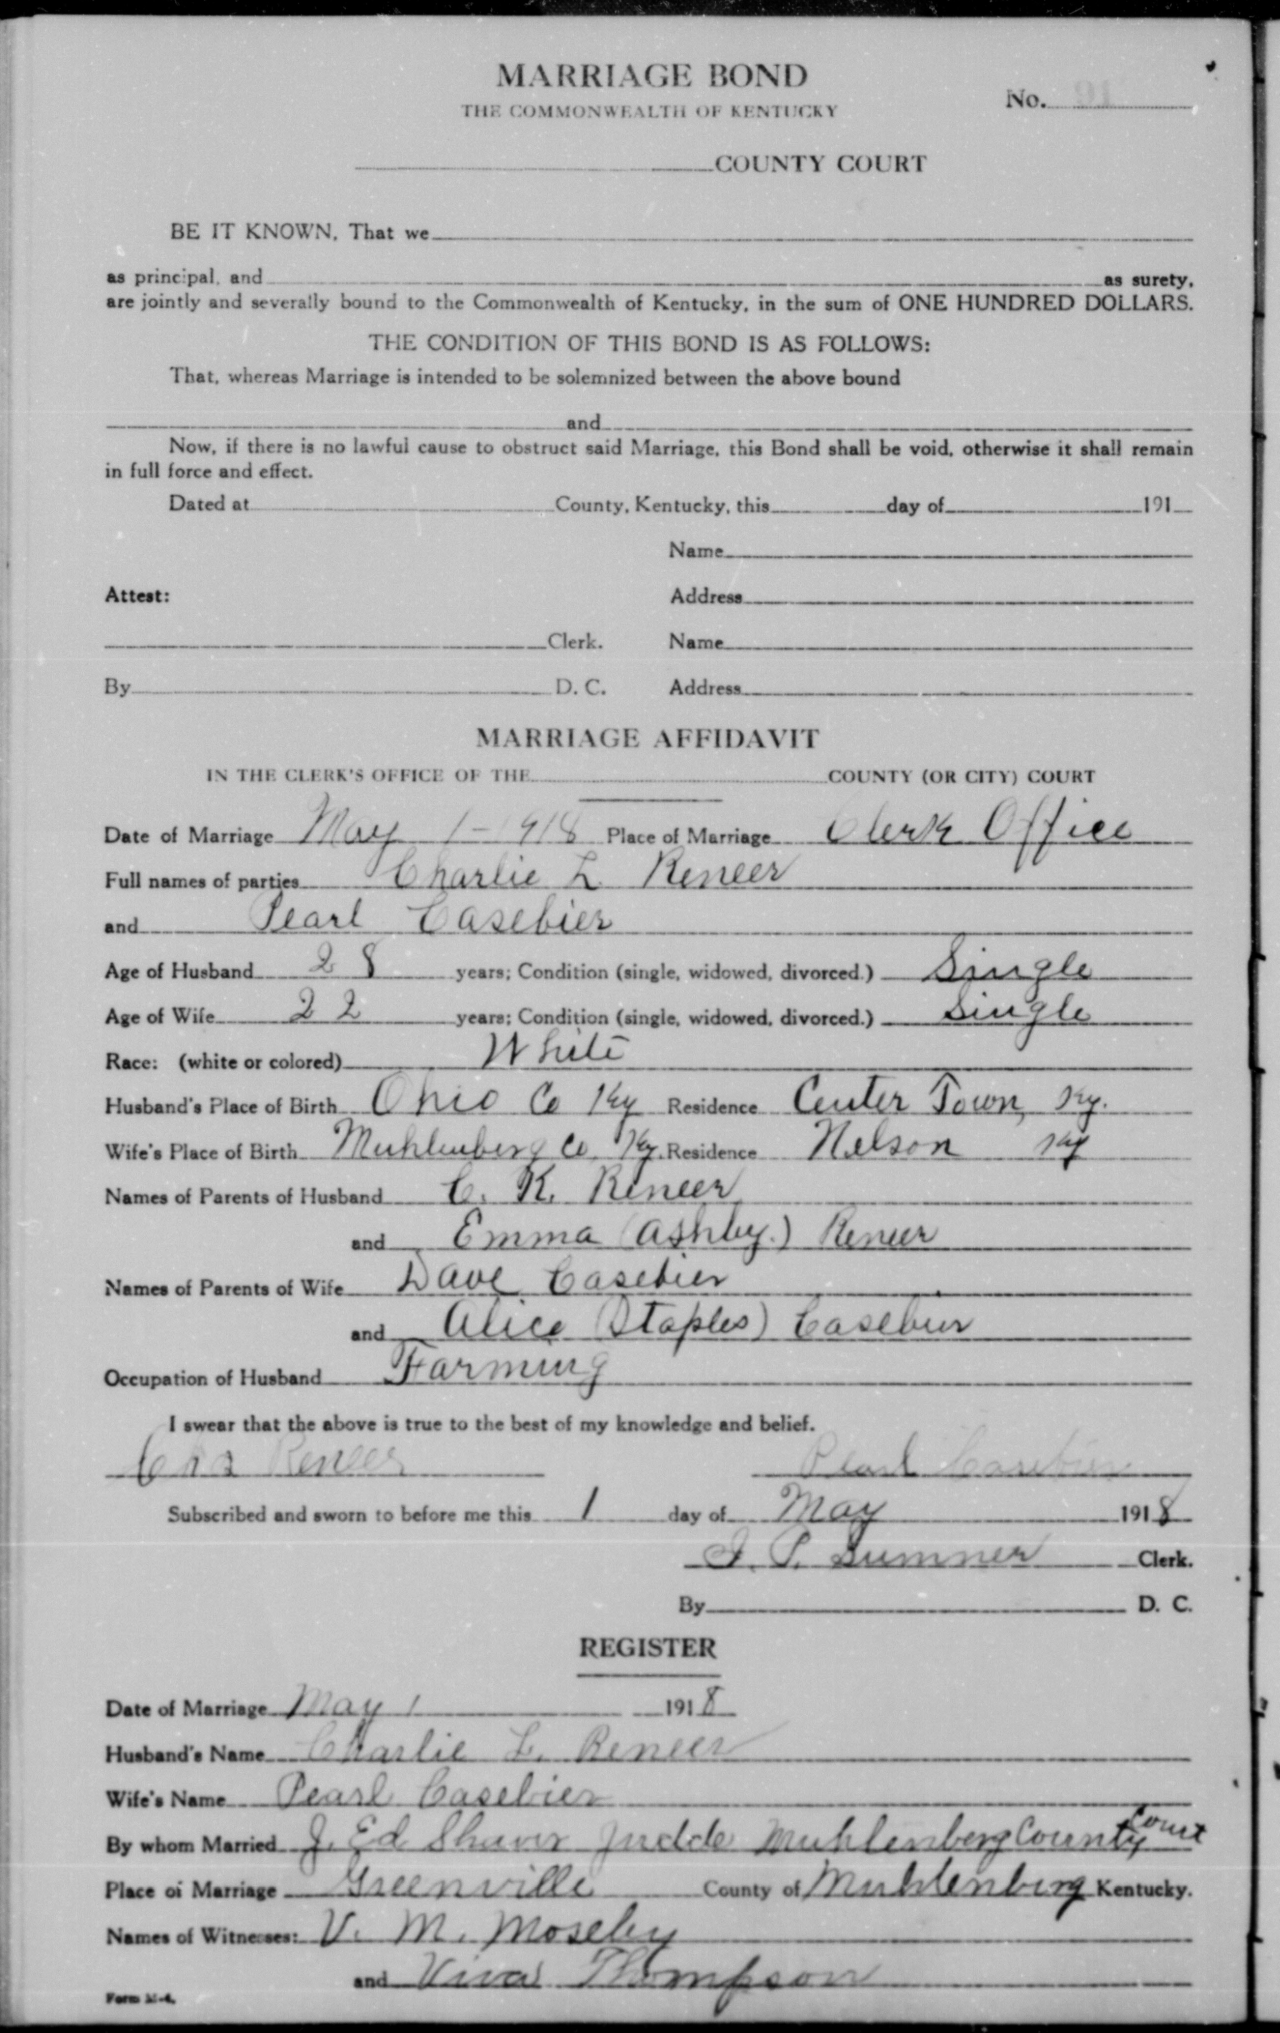 MARRIAGE BOND
THE COMMONWEALTH OF KENTUCKY
No. 91
COUNTY COURT
BE IT KNOWN, That we
as principal, and as surety,
are jointly and severally bound to the Commonwealth of Kentucky, in the sum of ONE HUNDRED DOLLARS.
THE CONDITION OF THIS BOND IS AS FOLLOWS:
That, whereas Marriage is intended to be solemnized between the above bound
and
Now, if there is no lawful cause to obstruct said Marriage, this Bond shall be void, otherwise it shall remain
in full force and effect.
Dated at County, Kentucky, this day of 191
Name
Attest: Address
Clerk. Name
By D. C. Address
MARRIAGE AFFIDAVIT
IN THE CLERK'S OFFICE OF THE COUNTY (OR CITY) COURT
Date of Marriage May 1-1918 Place of Marriage Clerk Office
Full names of parties Charlie L Reneer
and Pearl Casebier
Age of Husband 28 years; Condition (single, widowed, divorced.) Single
Age of Wife 22 years; Condition (single, widowed, divorced.) Single
Race: (white or colored) White
Husband's Place of Birth Ohio Co Ky Residence Center Town, Ky.
Wife's Place of Birth Muhlenberg Co. Ky. Residence Nelson Ky
Names of Parents of Husband C. K. Reneer
and Emma (Ashby.) Reneer
Names of Parents of Wife Dave Casebier
and Alice (Staples) Casebier
Occupation of Husband Farming
I swear that the above is true to the best of my knowledge and belief.
Chas Reneer Pearl Casebier
Subscribed and sworn to before me this 1 day of May 1918
J. P. Sumner Clerk.
By D. C.
REGISTER
Date of Marriage May 1 1918
Husband's Name Charlie L. Reneer
Wife's Name Pearl Casebier
By whom Married J. Ed Shaver Judde Muhlenberg County Court
Place of Marriage Greenville County of Muhlenberg Kentucky.
Names of Witnesses: V. M. Moseley
and Viva Thompson
Form M-4.